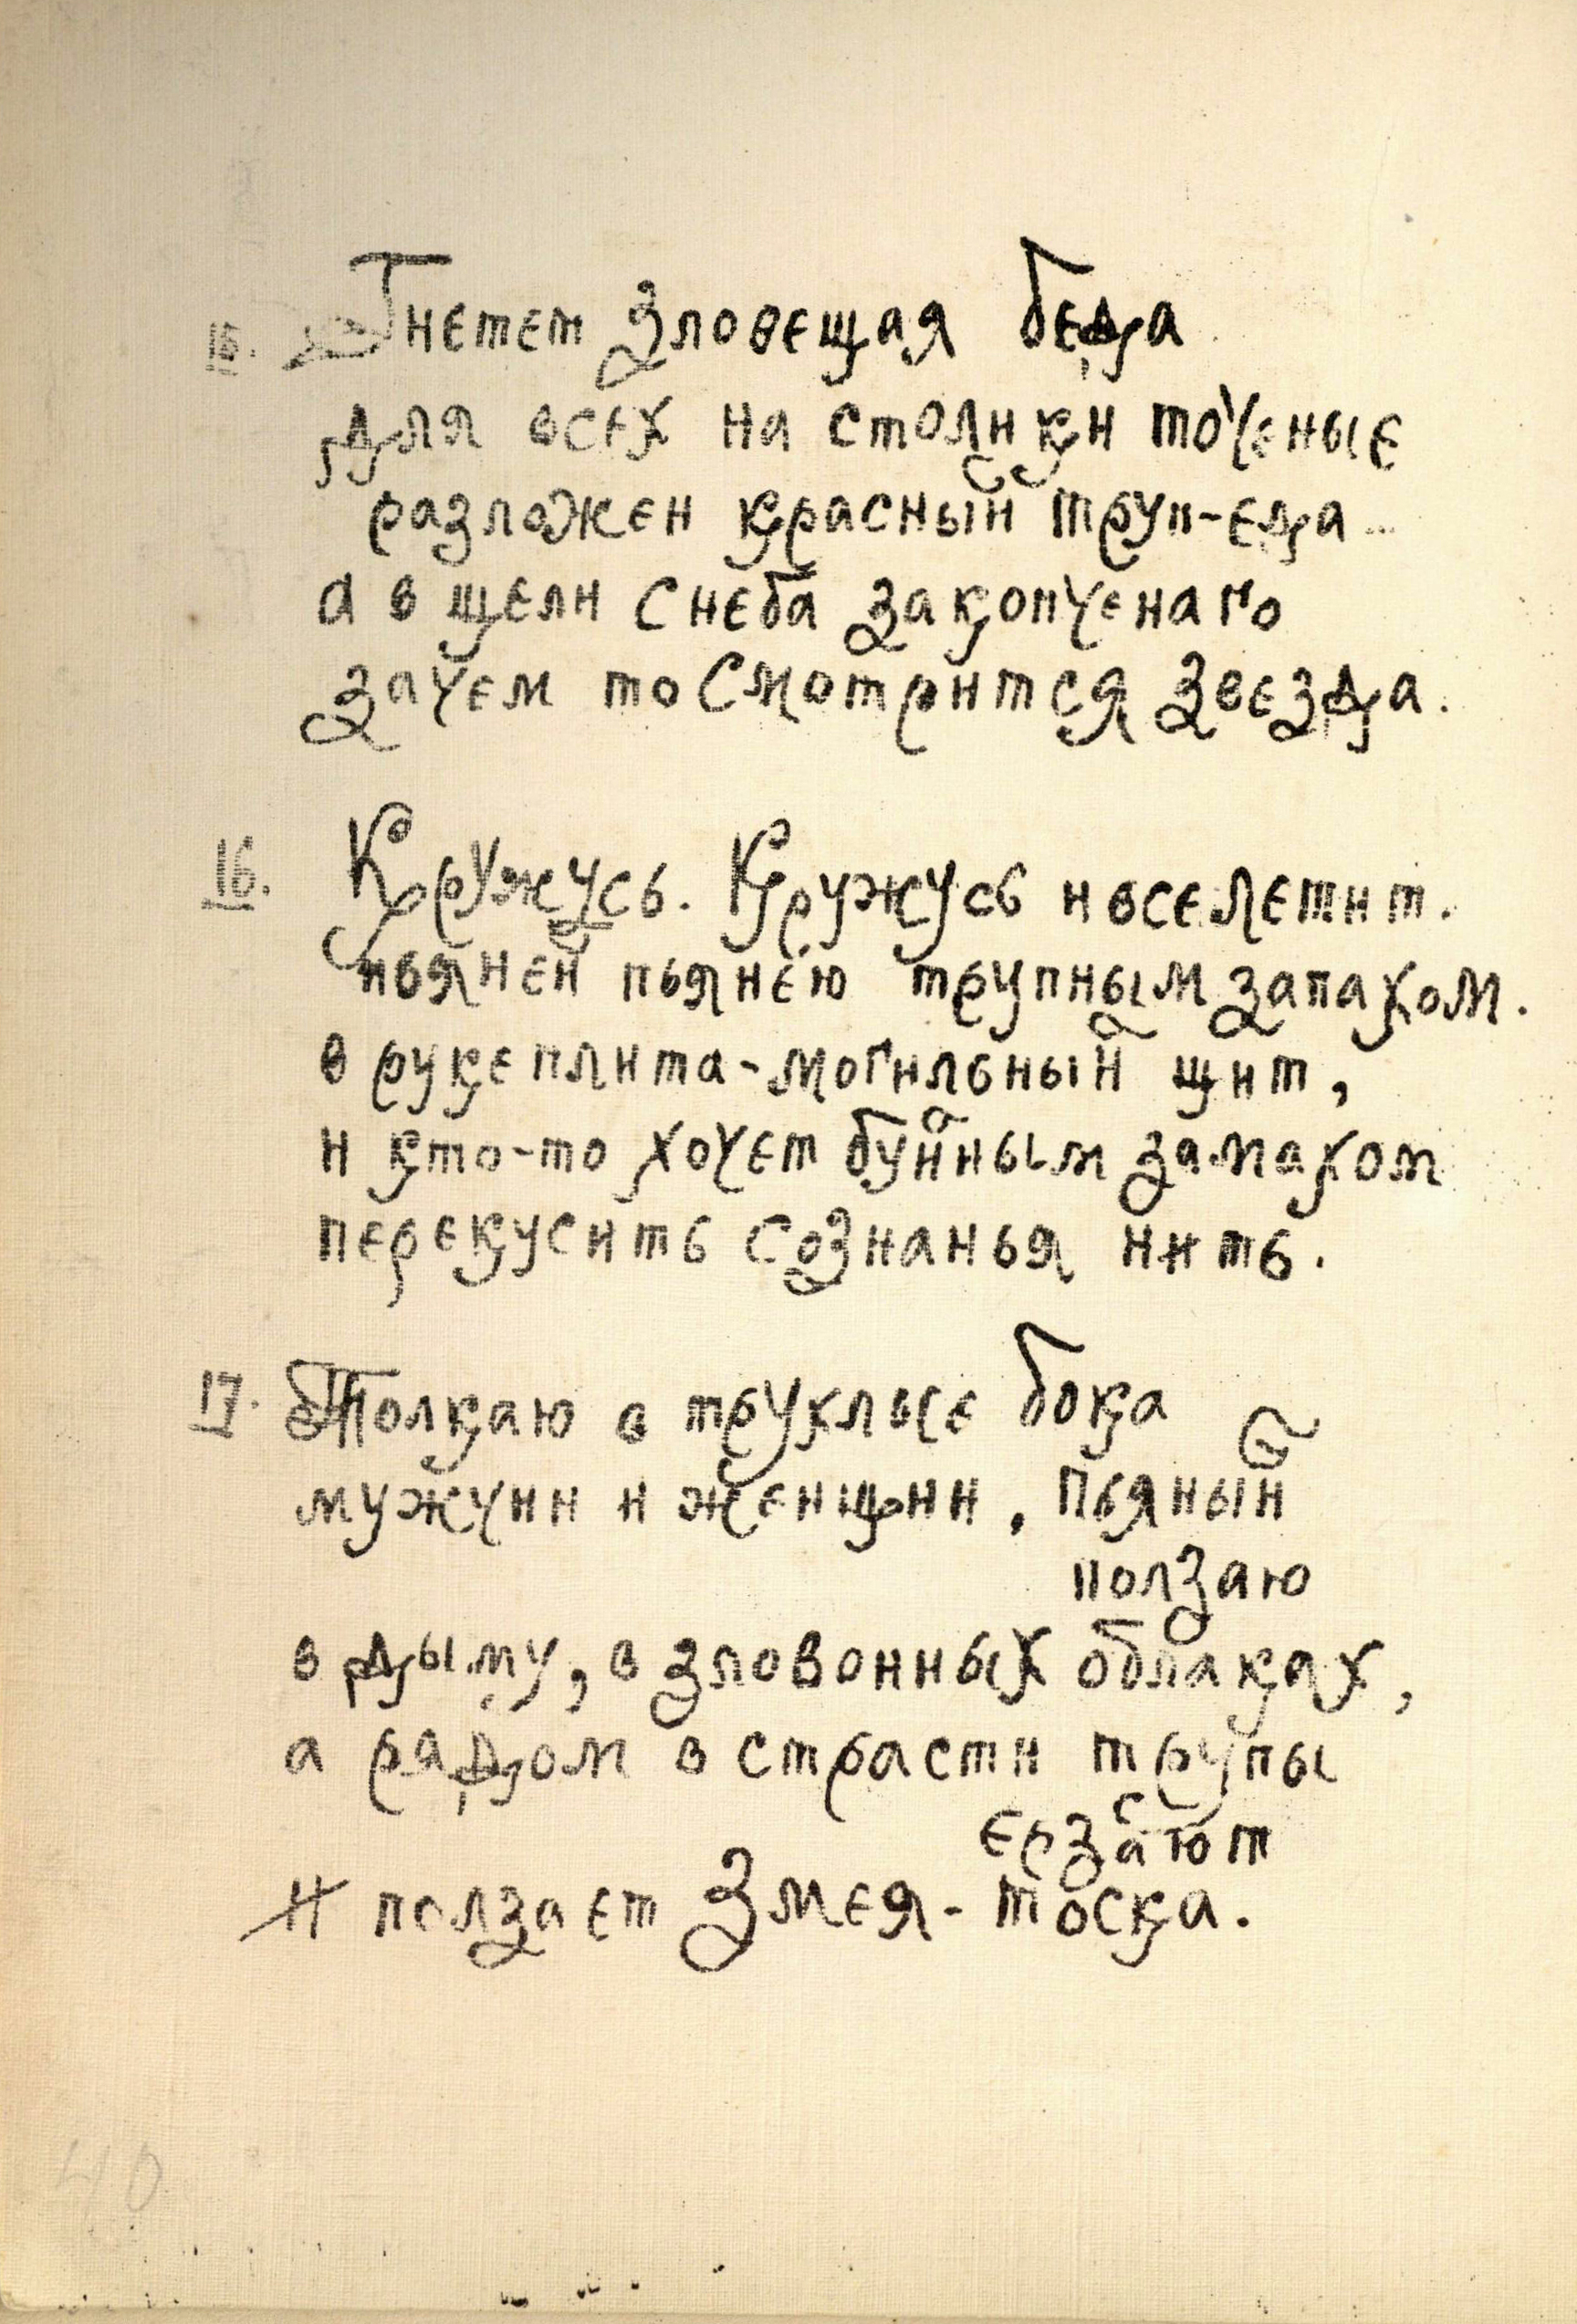 15. Гнетет зловещая беда
для всех на столики точеные
разложен красный труп-еда...
а в щели с неба закопченаго
зачем то смотрится звезда.
16. Кружусь. Кружусь и все летит.
пьяней пьянею трупным запахом.
в руке плита-могильный щит,
и кто-то хочет буйным замахом
перекусить сознанья нить.
17. Толкаю в трухлые бока
мужчин и женщин, пьяный
ползаю
в дыму, в зловонных облаках,
а рядом в страсти трупы
ерзают
И ползает Змея-тоска.
40